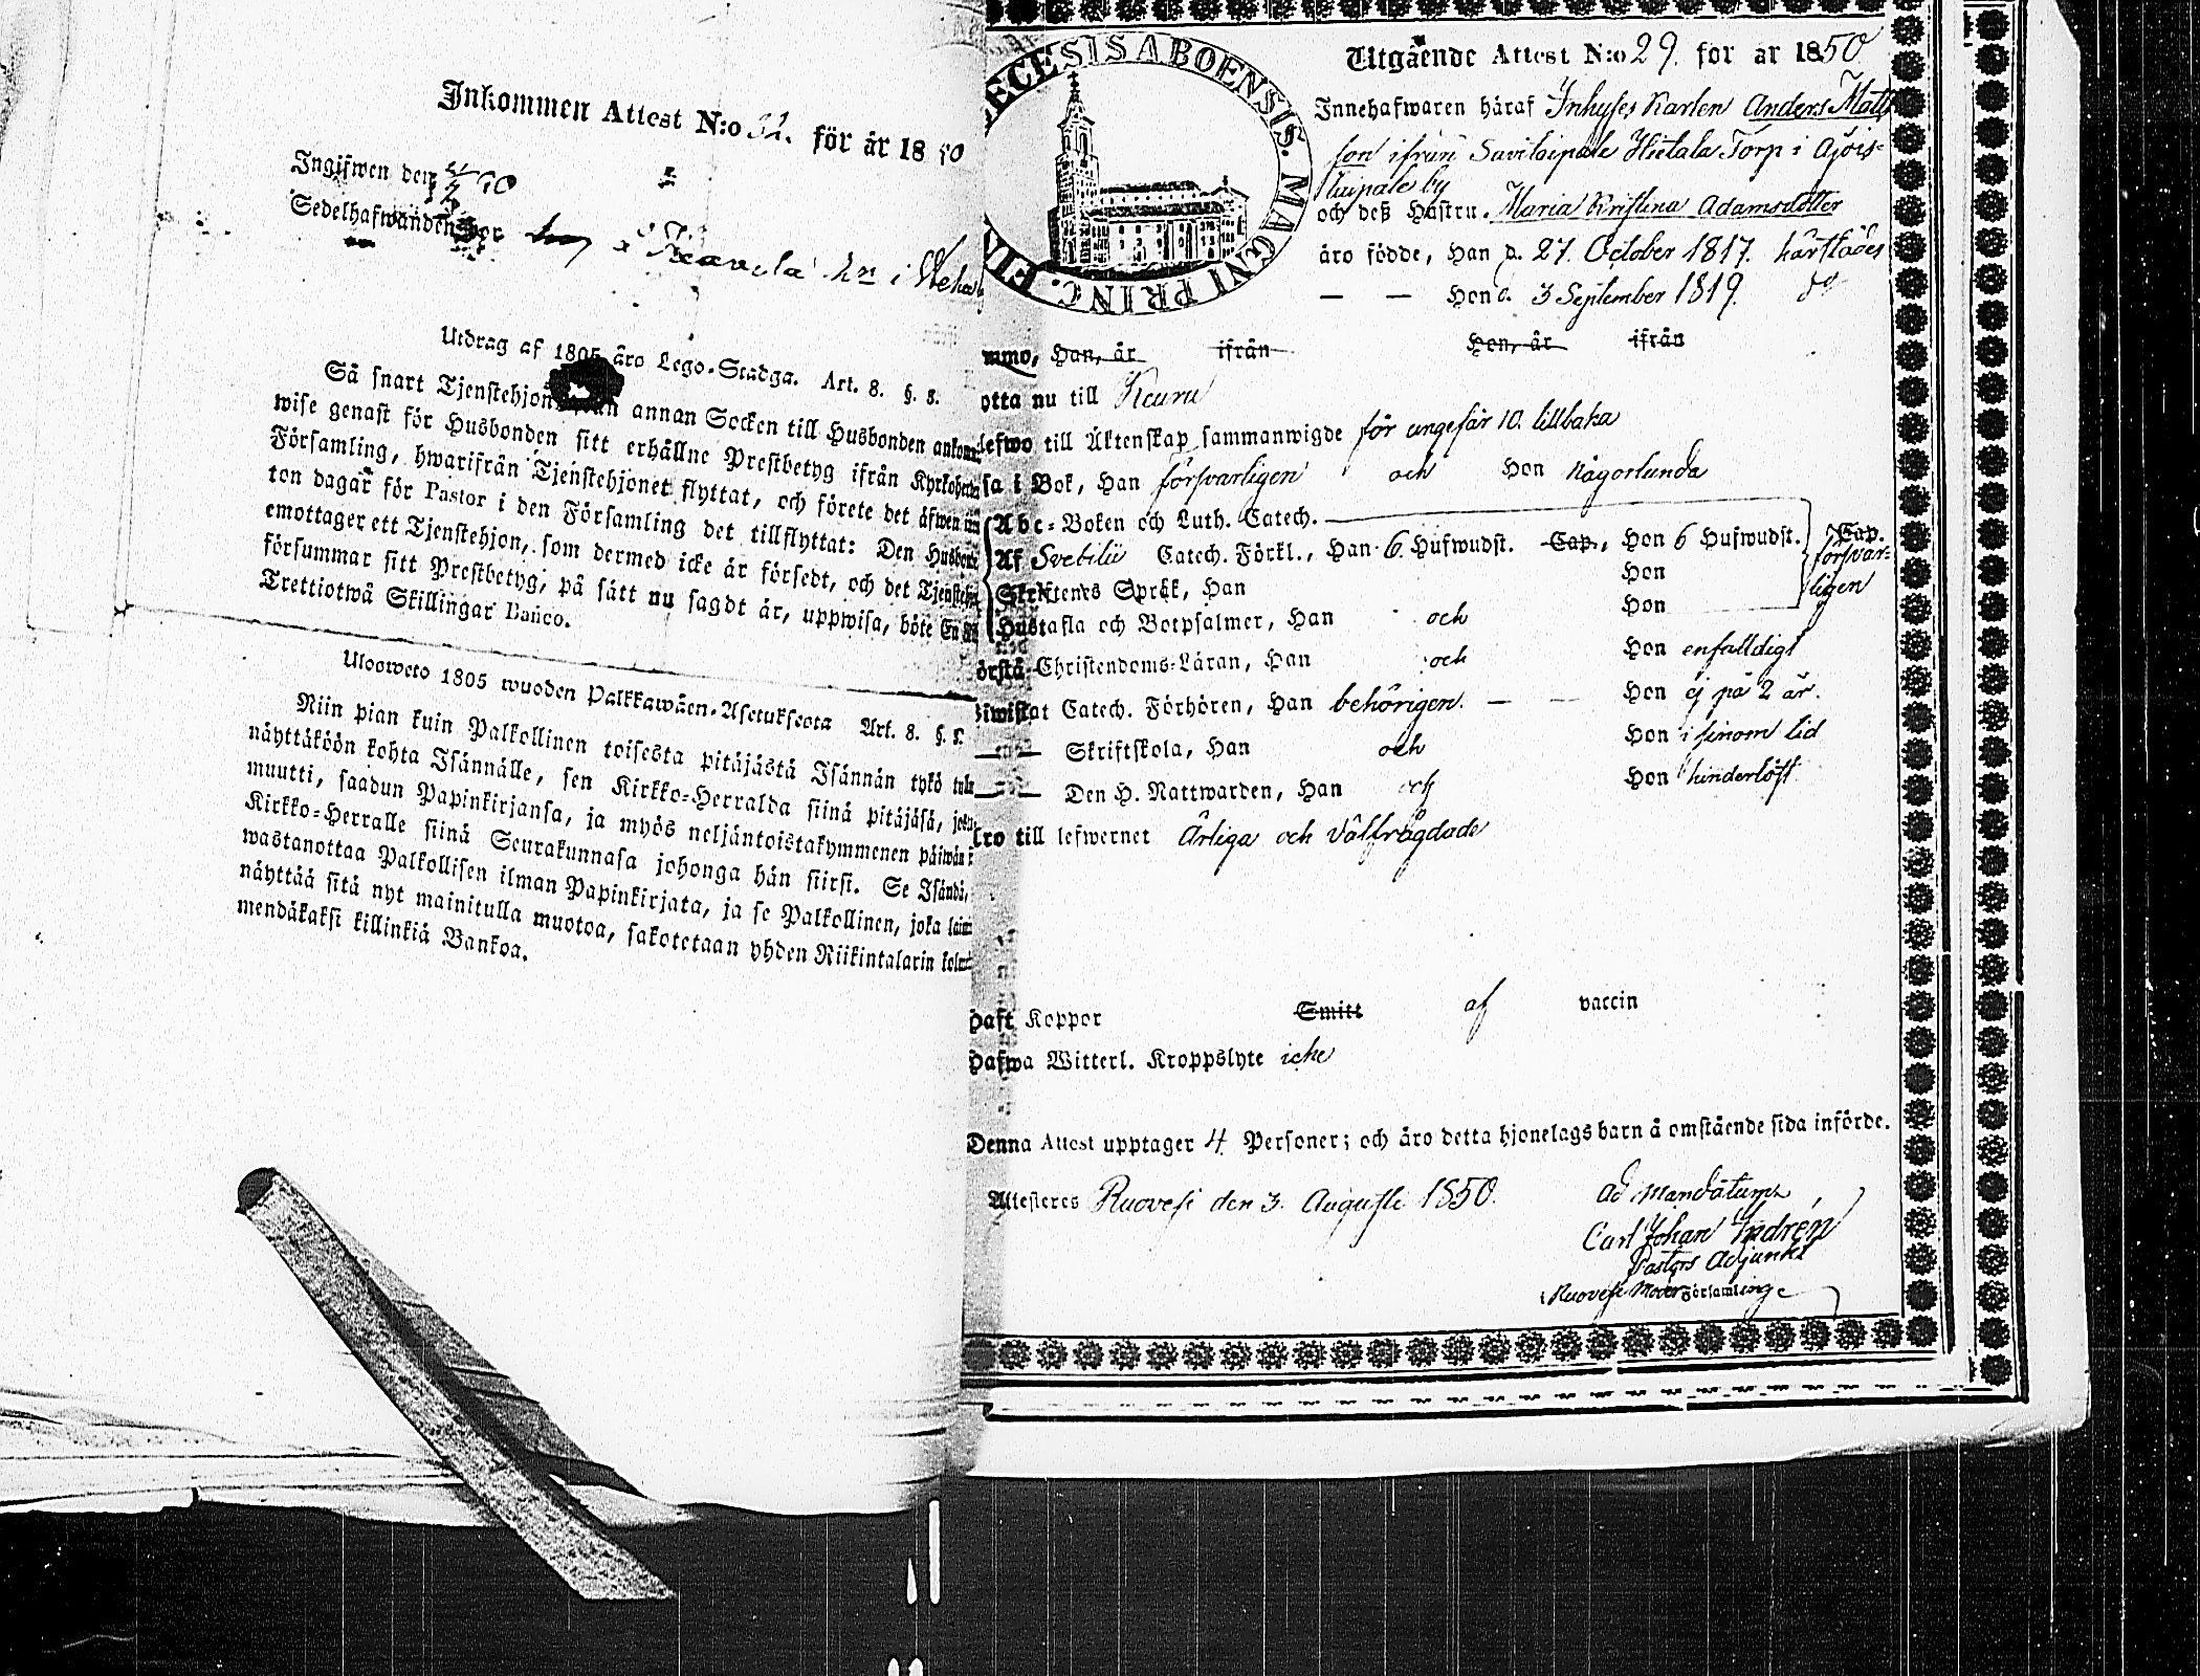 Inkommen Attest N:o 32. för år 1850
Ingifwen den
Sedelhafwanden bor i
Utdrag af 1805 åro Lego-Stadga. Art. 8. §. 8.
Så snart Tjenstehjon från annan Socken till Husbonden ankom
wise genast för Husbonden sitt erhållne Prestbetyg ifrån Kyrkoherd
Församling, hwarifrån Tjenstehjonet flyttat, och förete det äfwen in
ton dagar för Pastor i den Församling det tillflyttat: Den Husbon
emottager ett Tjenstehjon, som dermed icke är försedt, och det Tjensteh
försummar sitt Prestbetyg, på sätt nu sagdt är, uppwisa, böte En
Trettiotwå Skillingar Banco.
Ulosweto 1805 wuoden Palkkawäen-Asetuksesta Art. 8. §. 8.
Niin pian kuin Palkollinen toisesta pitäjästä Isännän tykö tule
näyttäköön kohta Isännälle, sen Kirkko-Herralda siinä pitäjäsä, josta
muutti, saadun Papinkirjansa, ja myös neljäntoistakymmenen päiwän
Kirkko-Herralle siinä Seurakunnasa johonga hän siirsi. Se Isändä,
wastanottaa Palkollisen ilman Papinkirjata, ja se Palkollinen, joka
näyttää sitä nyt mainitulla muotoa, sakotetaan yhden Riikintalarin kol
mendäkaksi killinkiä Bankoa.
ECESIS ABOENSIS. MAGNI PRINC. FIN
Utgående Attest N:o 29. for år 1850
Innehafwaren häraf Inhyses Karlen Anders Matts
son ifrån Savilaipale Hietala Torp i Ajois-
taipale by
och deß Hustru. Maria Kristina Adamsdotter
äro födde, Han d. 27. October 1817. härstädes
— — Hon d. 3 September 1819. do
mmo, Han, är ifrån Hon, är ifrån
otta nu till Keuru
lefwo till Äktenskap sammanwigde för ungefär 10. tillbaka
sa i Bok, Han försvarligen och Hon någorlunda
Abc-Boken och Luth. Catech.
Af Svebilii Catech. Förkl., Han 6 Hufwudst. Cap., Hon 6 Hufwudst. Cap. försvar-
ligen
Skriftenes Språk, Han Hon
Hustafla och Botpsalmer, Han och Hon
örstå Christendoms-Läran, Han och Hon enfalldigt
Biwistat Catech. Förhören, Han behörigen. — — Hon ej på 2 år.
— Skriftskola, Han och Hon i sinom tid
— Den H. Nattwarden, Han och Hon hinderlöst
Äro till lefwernet Ärliga och Välfrägdade
Haft Koppor Smitt af vaccin
Hafwa Witterl. Kroppslyte icke
Denna Attest upptager 4 Personer; och äro detta hjonelags barn å omstående sida införde.
Attesteres Ruovesi den 3. Augusti 1850.
ad mandatum
Carl Johan Indrén
Pastors Adjunkt
i Ruovesi Moder Församling